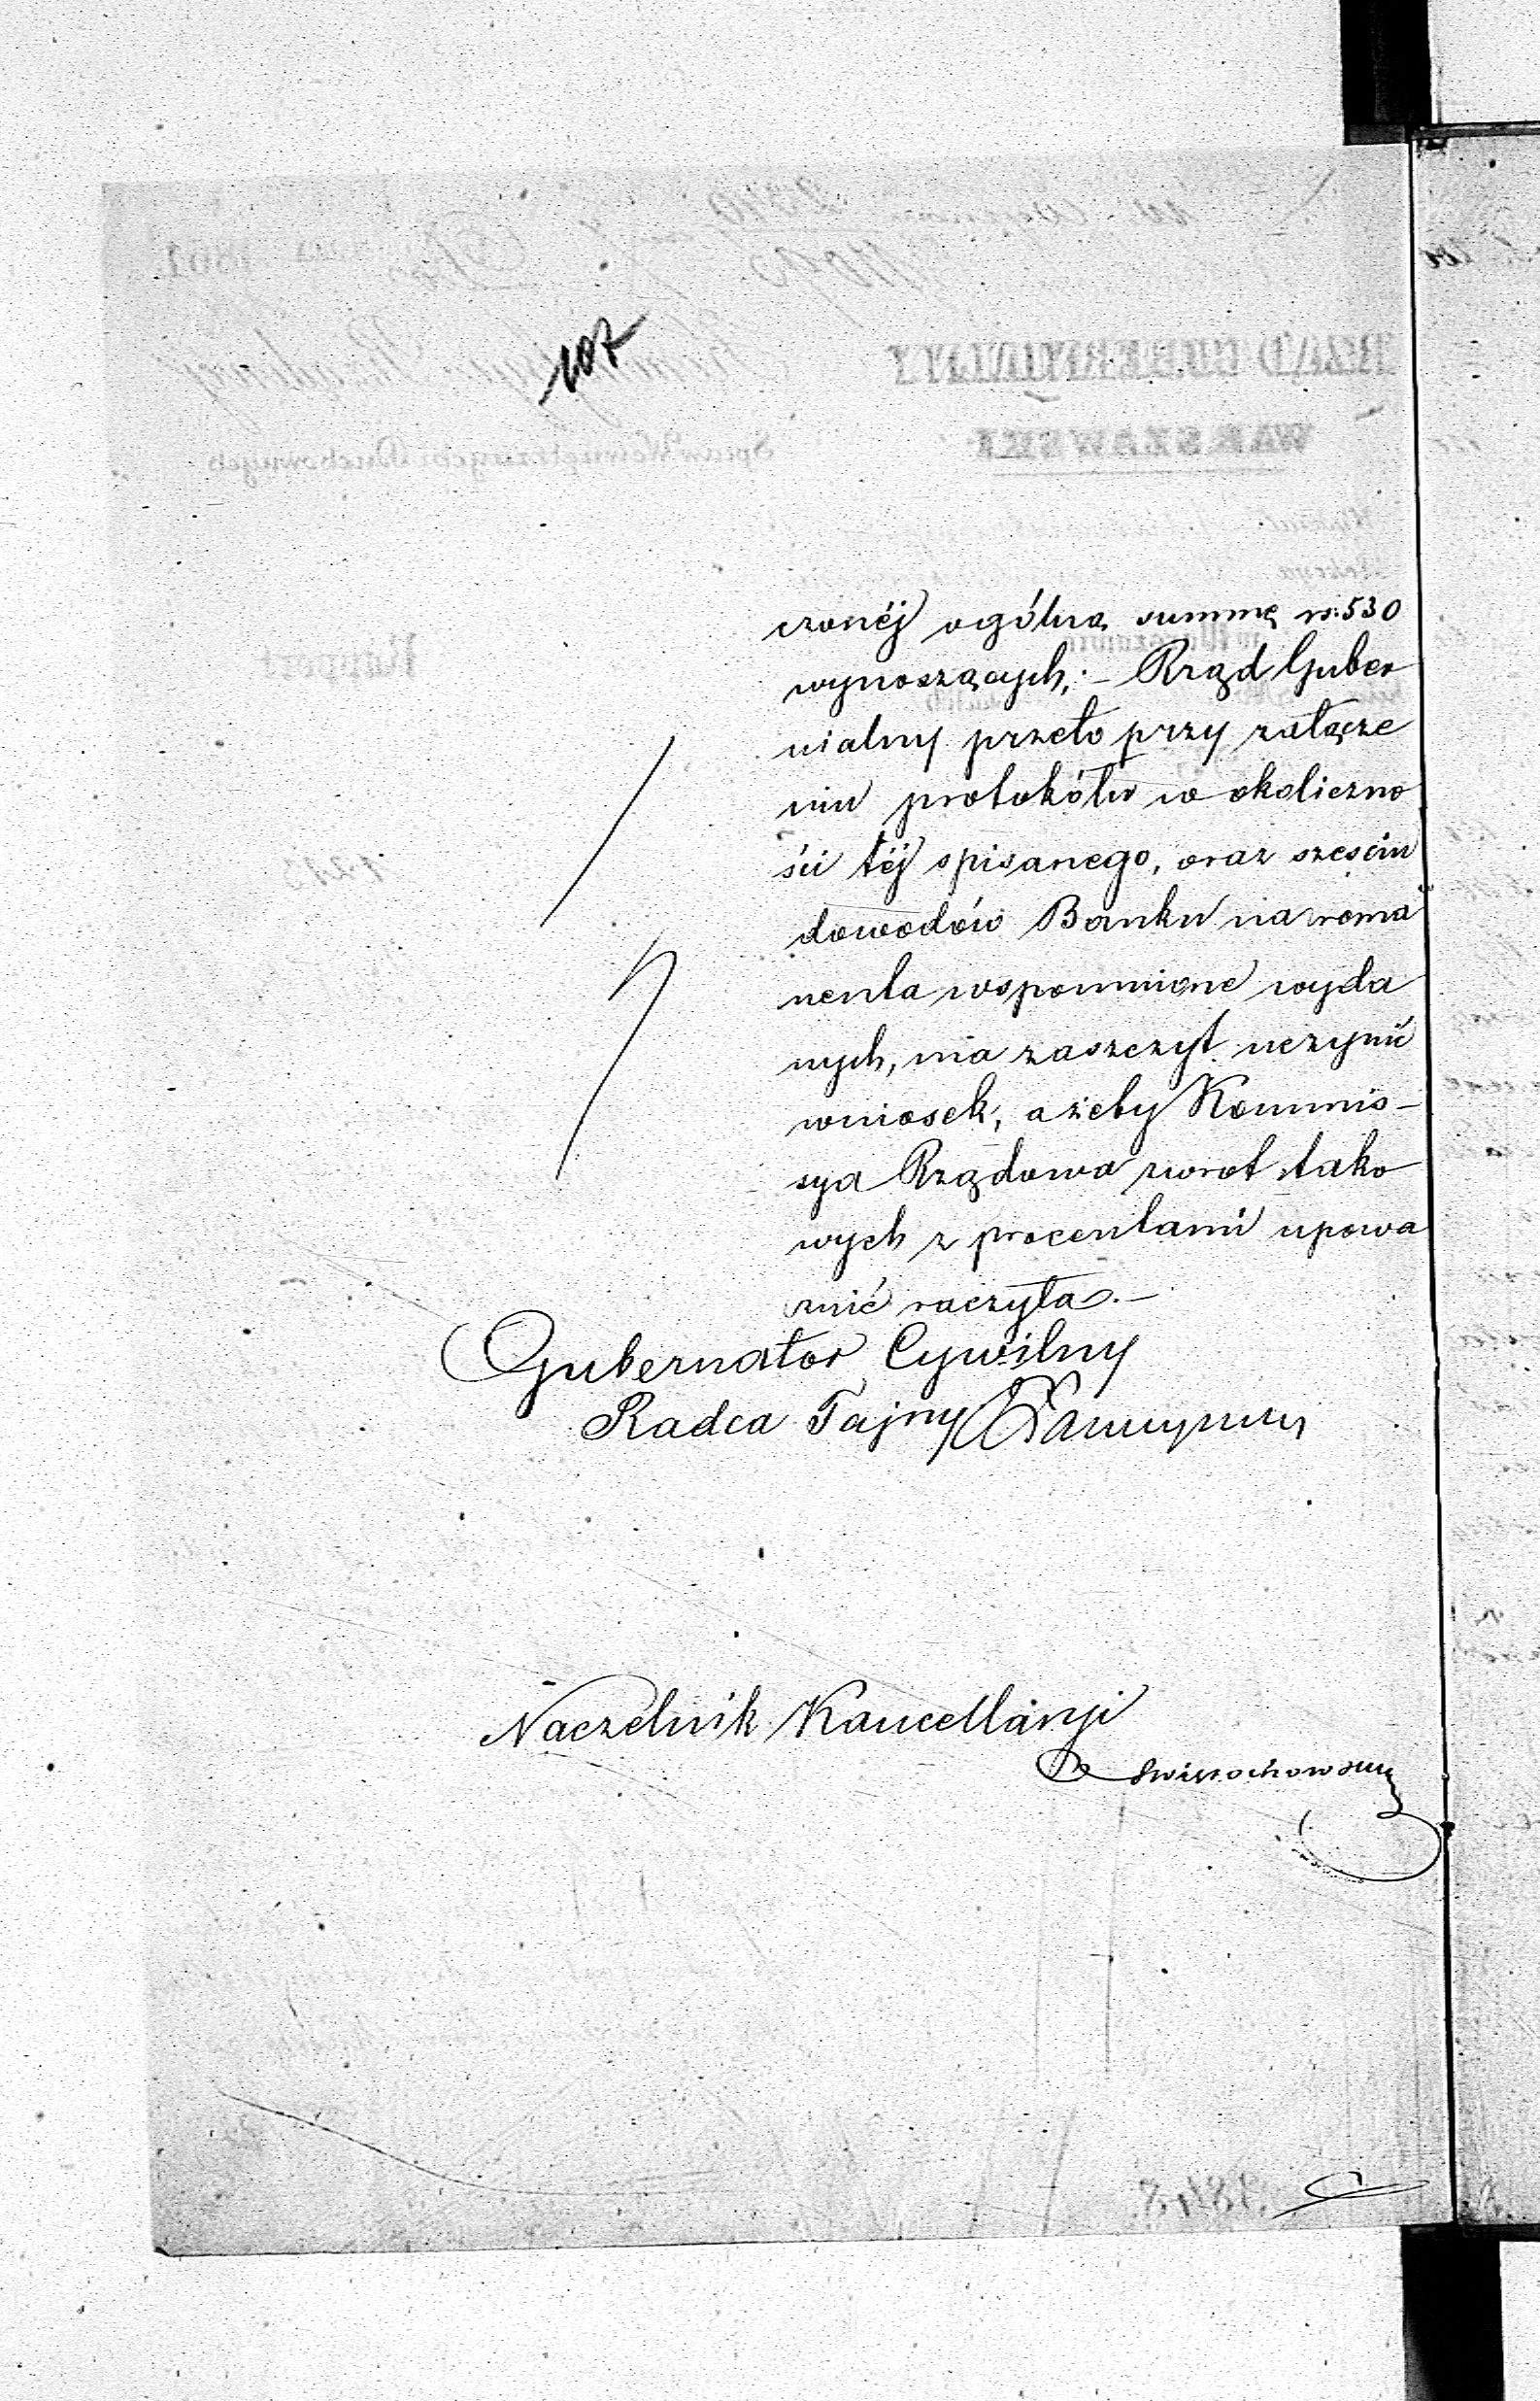 107
czonéj ogólną summę rs. 530
wynoszących; – Rząd Guber
nialny przeto przy załącze
niu protokółu w okoliczno
ści téj spisanego, oraz sześciu
dowodów Banku na roma
nenta wspomnione wyda
nych, ma zaszczyt uczynić
wniosek, ażeby Kommis–
sya Rządowa zwrot tako
wych z procentami upowa
żnić raczyła.–
Gubernator Cywilny
Radca Tajny
Naczelnik Kancellaryi